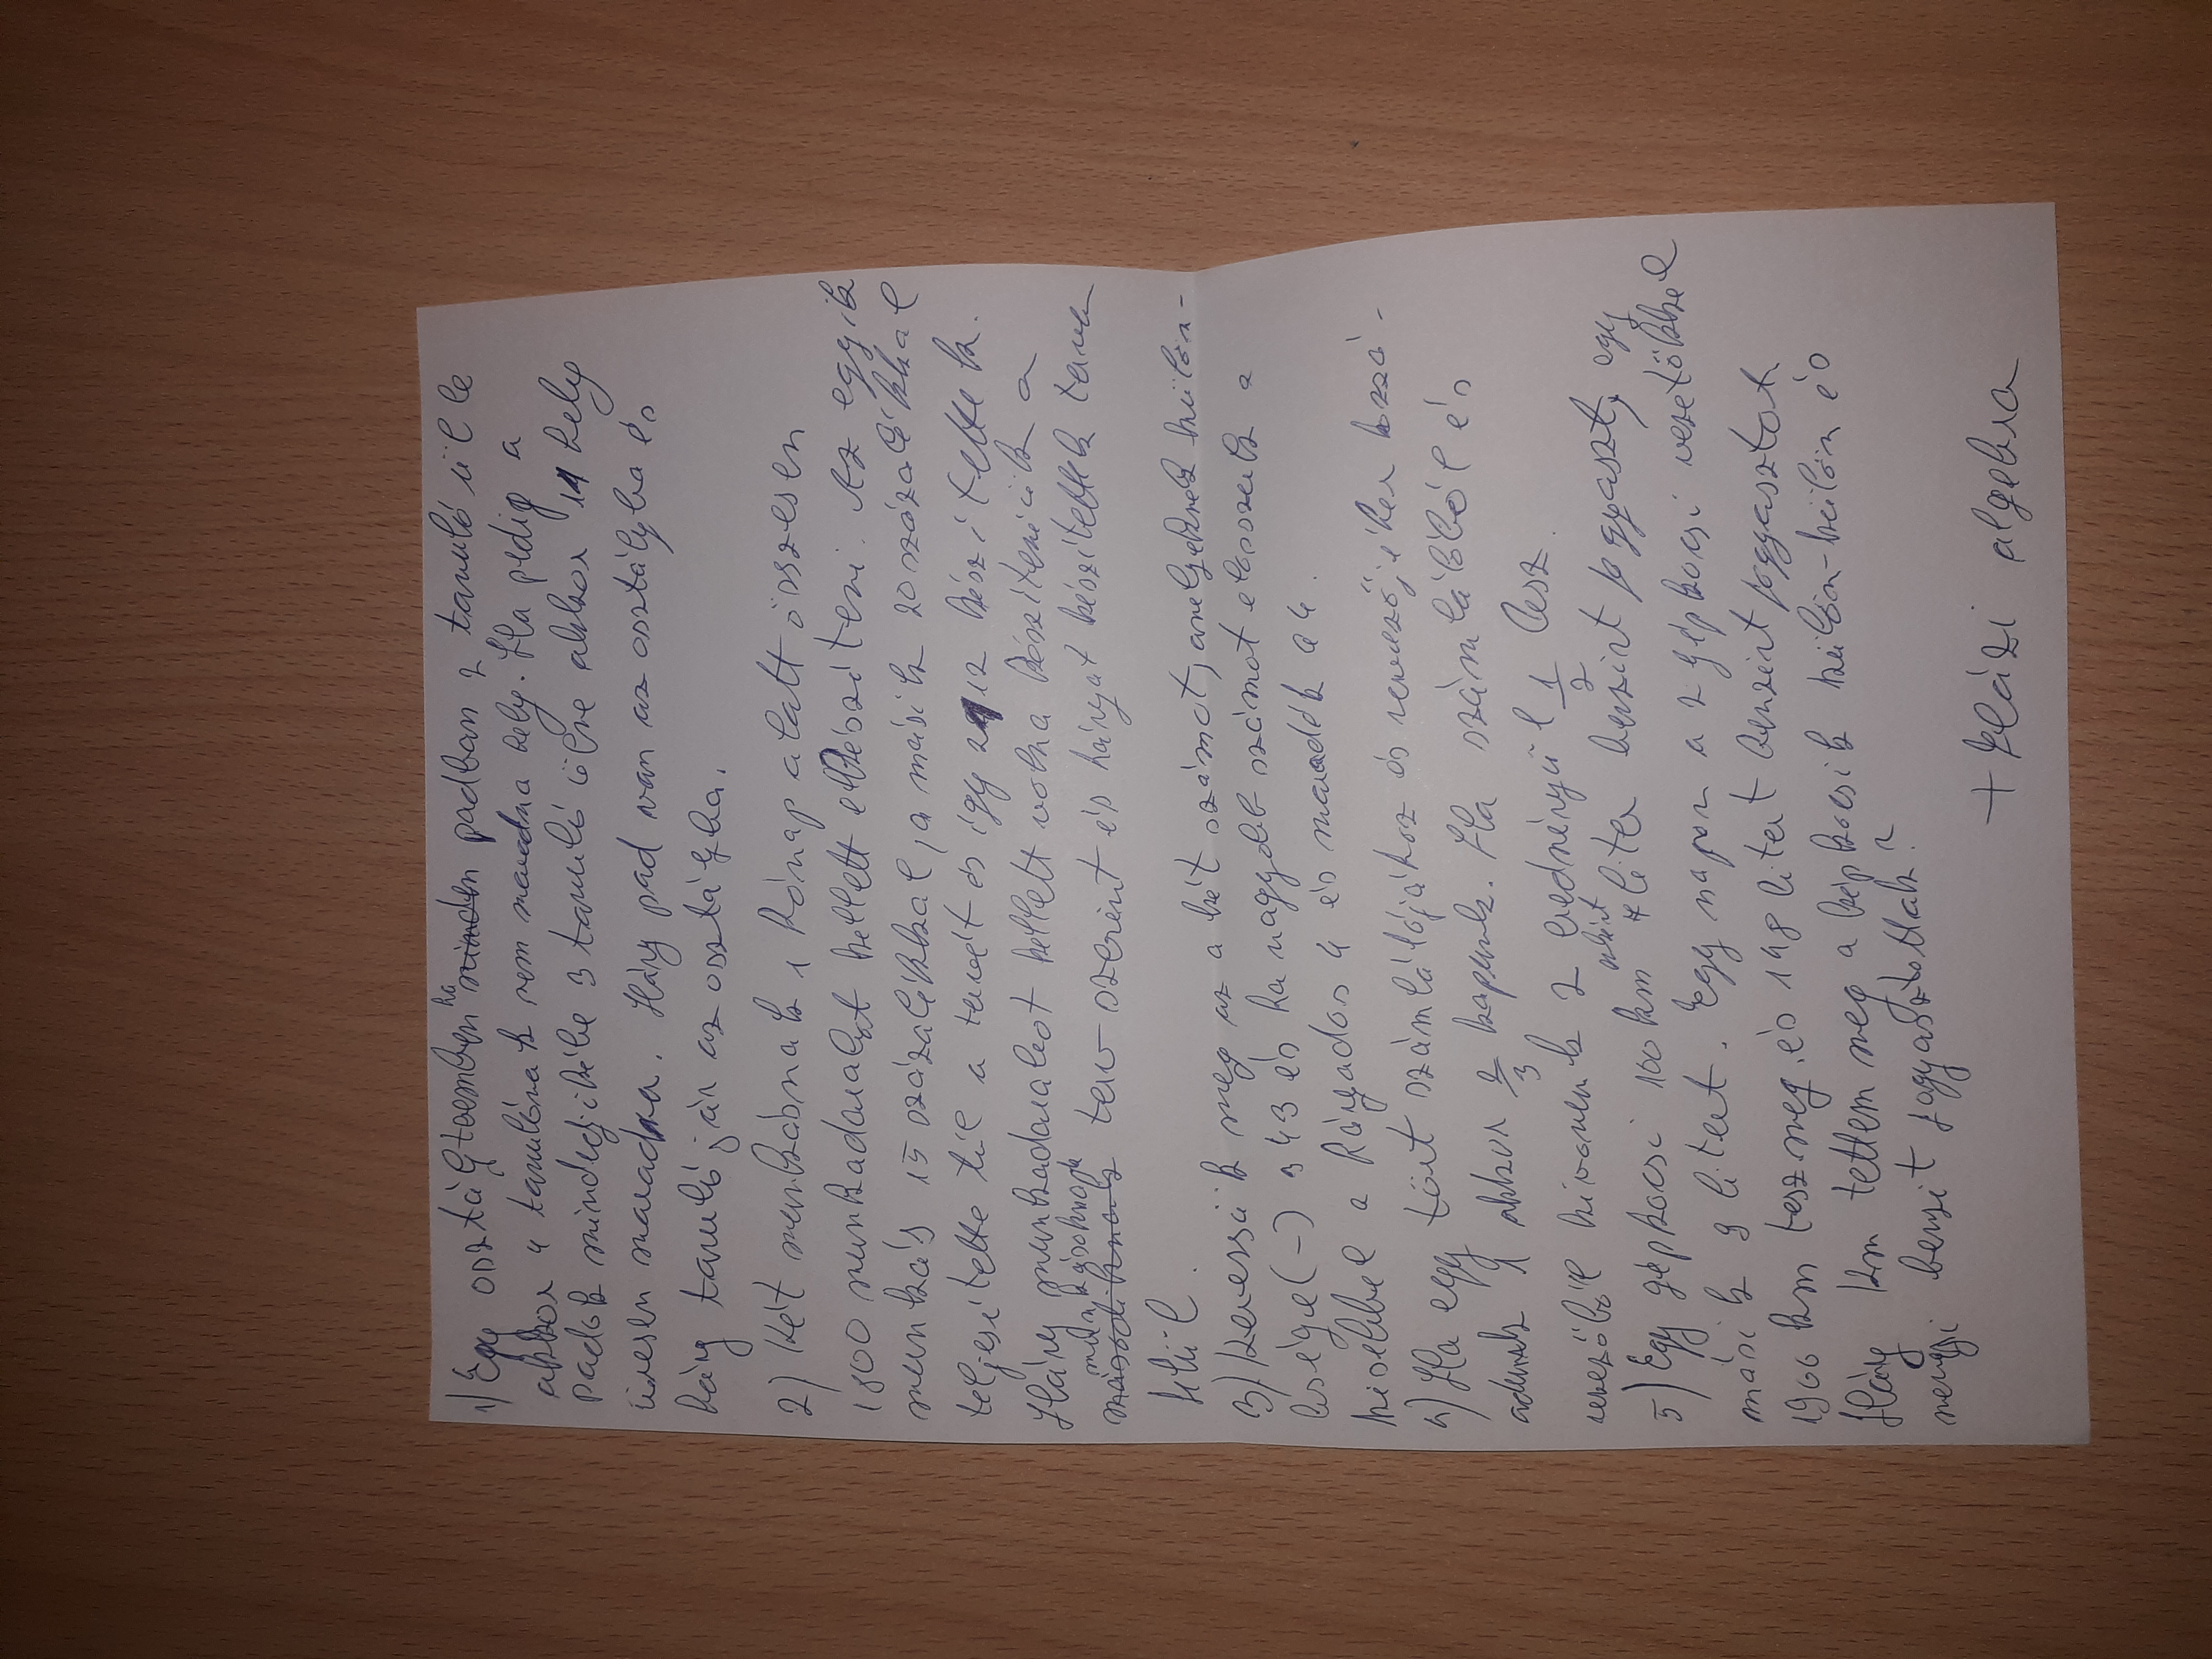 1) Egy osztályteremben ha minden padban 2 tanuló ül le
akkor 4 tanulónak nem maradna hely. Ha pedig a
padok mindegyikébe 3 tanuló ülne akkor 14 hely
üresen maradna. Hány pad van az osztályba és
hány tanuló jár az osztályba.
2) Két munkásnak 1 hónap alatt összesen
1800 munkadarabot kellett elkészíteni. Az egyik
munkás 15 százalékkal, a másik 20 százalékkal
teljesítette túl a tervet és így 2112 készítettek.
Hány munkadarabot kellett volna készíteniük a
munkásoknak
másod terv szerint és hányat készítettek terven
felül.
3) Keressük meg az a két számot, amelyeknek külön-
bsége (-) 343 és ha nagyobb számot elosszuk a
kisebbel a hányados 4 és maradék a 4.
4) Ha egy tört számlálójához és nevezőjéhez hozzá-
adunk 1 akkor 2/3 kapunk. Ha számlálóból és
nevezőből kivonunk 2 eredményül 1/2 lesz.
5) Egy gépkocsi 100 km 7 liter benzint fogyaszt, egy
másik 9 litert. Egy napon a 2 gépkocsi vezetőkkel
1900 km tesz meg, és 148 liter benzint fogyasztott
Hány km tettem meg a képkocsik külön-külön és
mennyi benzint fogyasztottak?
+ Házi algebra